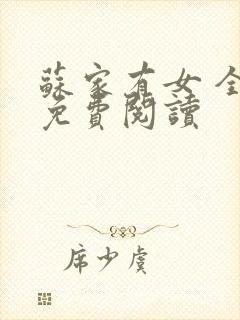 蘇家有女 全
免費閱讀
席少虞